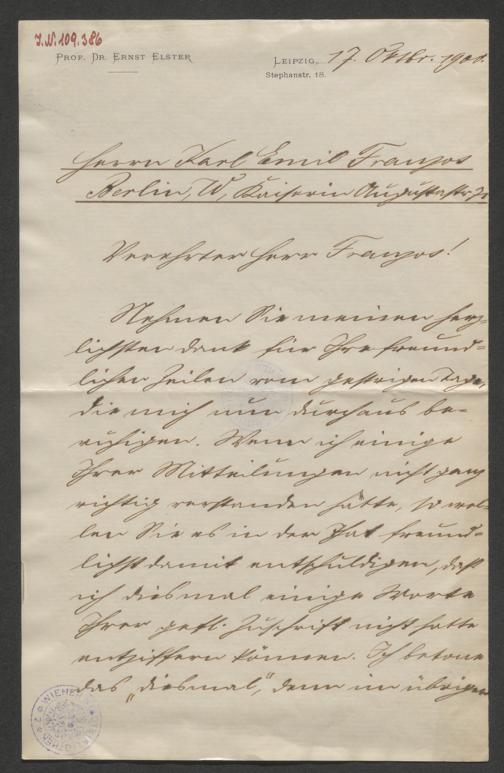 I.N. 109.386
PROF. DR. ERNST ELSTER
LEIPZIG, 17. Oktbr. 1901.
Stephanstr. 18.
Herrn Karl Emil Franzos
Berlin, W, Kaiserin Augustastr. 71
Verehrter Herr Franzos!
Nehmen Sie meinen herz-
lichsten Dank für Ihre freund-
lichen Zeilen vom gestrigen Tage,
die mich nun durchaus be-
ruhigen. Wenn ich einige
Ihrer Mitteilungen nicht ganz
richtig verstanden hätte, so wol-
len Sie es in der That freund-
lichst damit entschuldigen, daß
ich diesmal einige Worte
Ihrer gefl. Zuschrift nicht hatte
entziffern können. Ich betone
das „diesmal“, denn im übrigen
WIENER